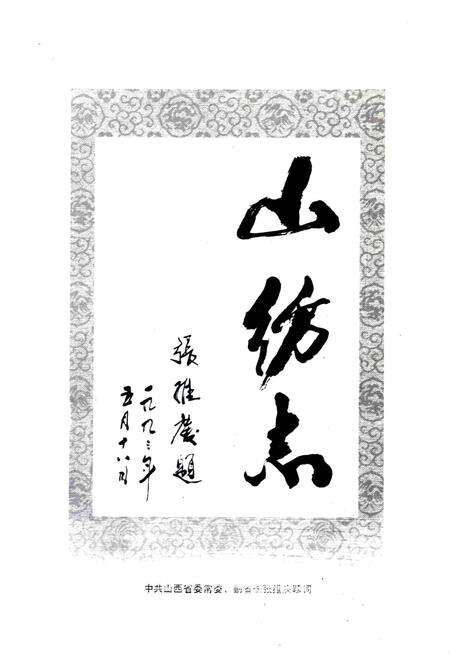 山纺志
張維慶題
一九九三年
五月十八日
中共山西省委常委、副省长张维庆题词